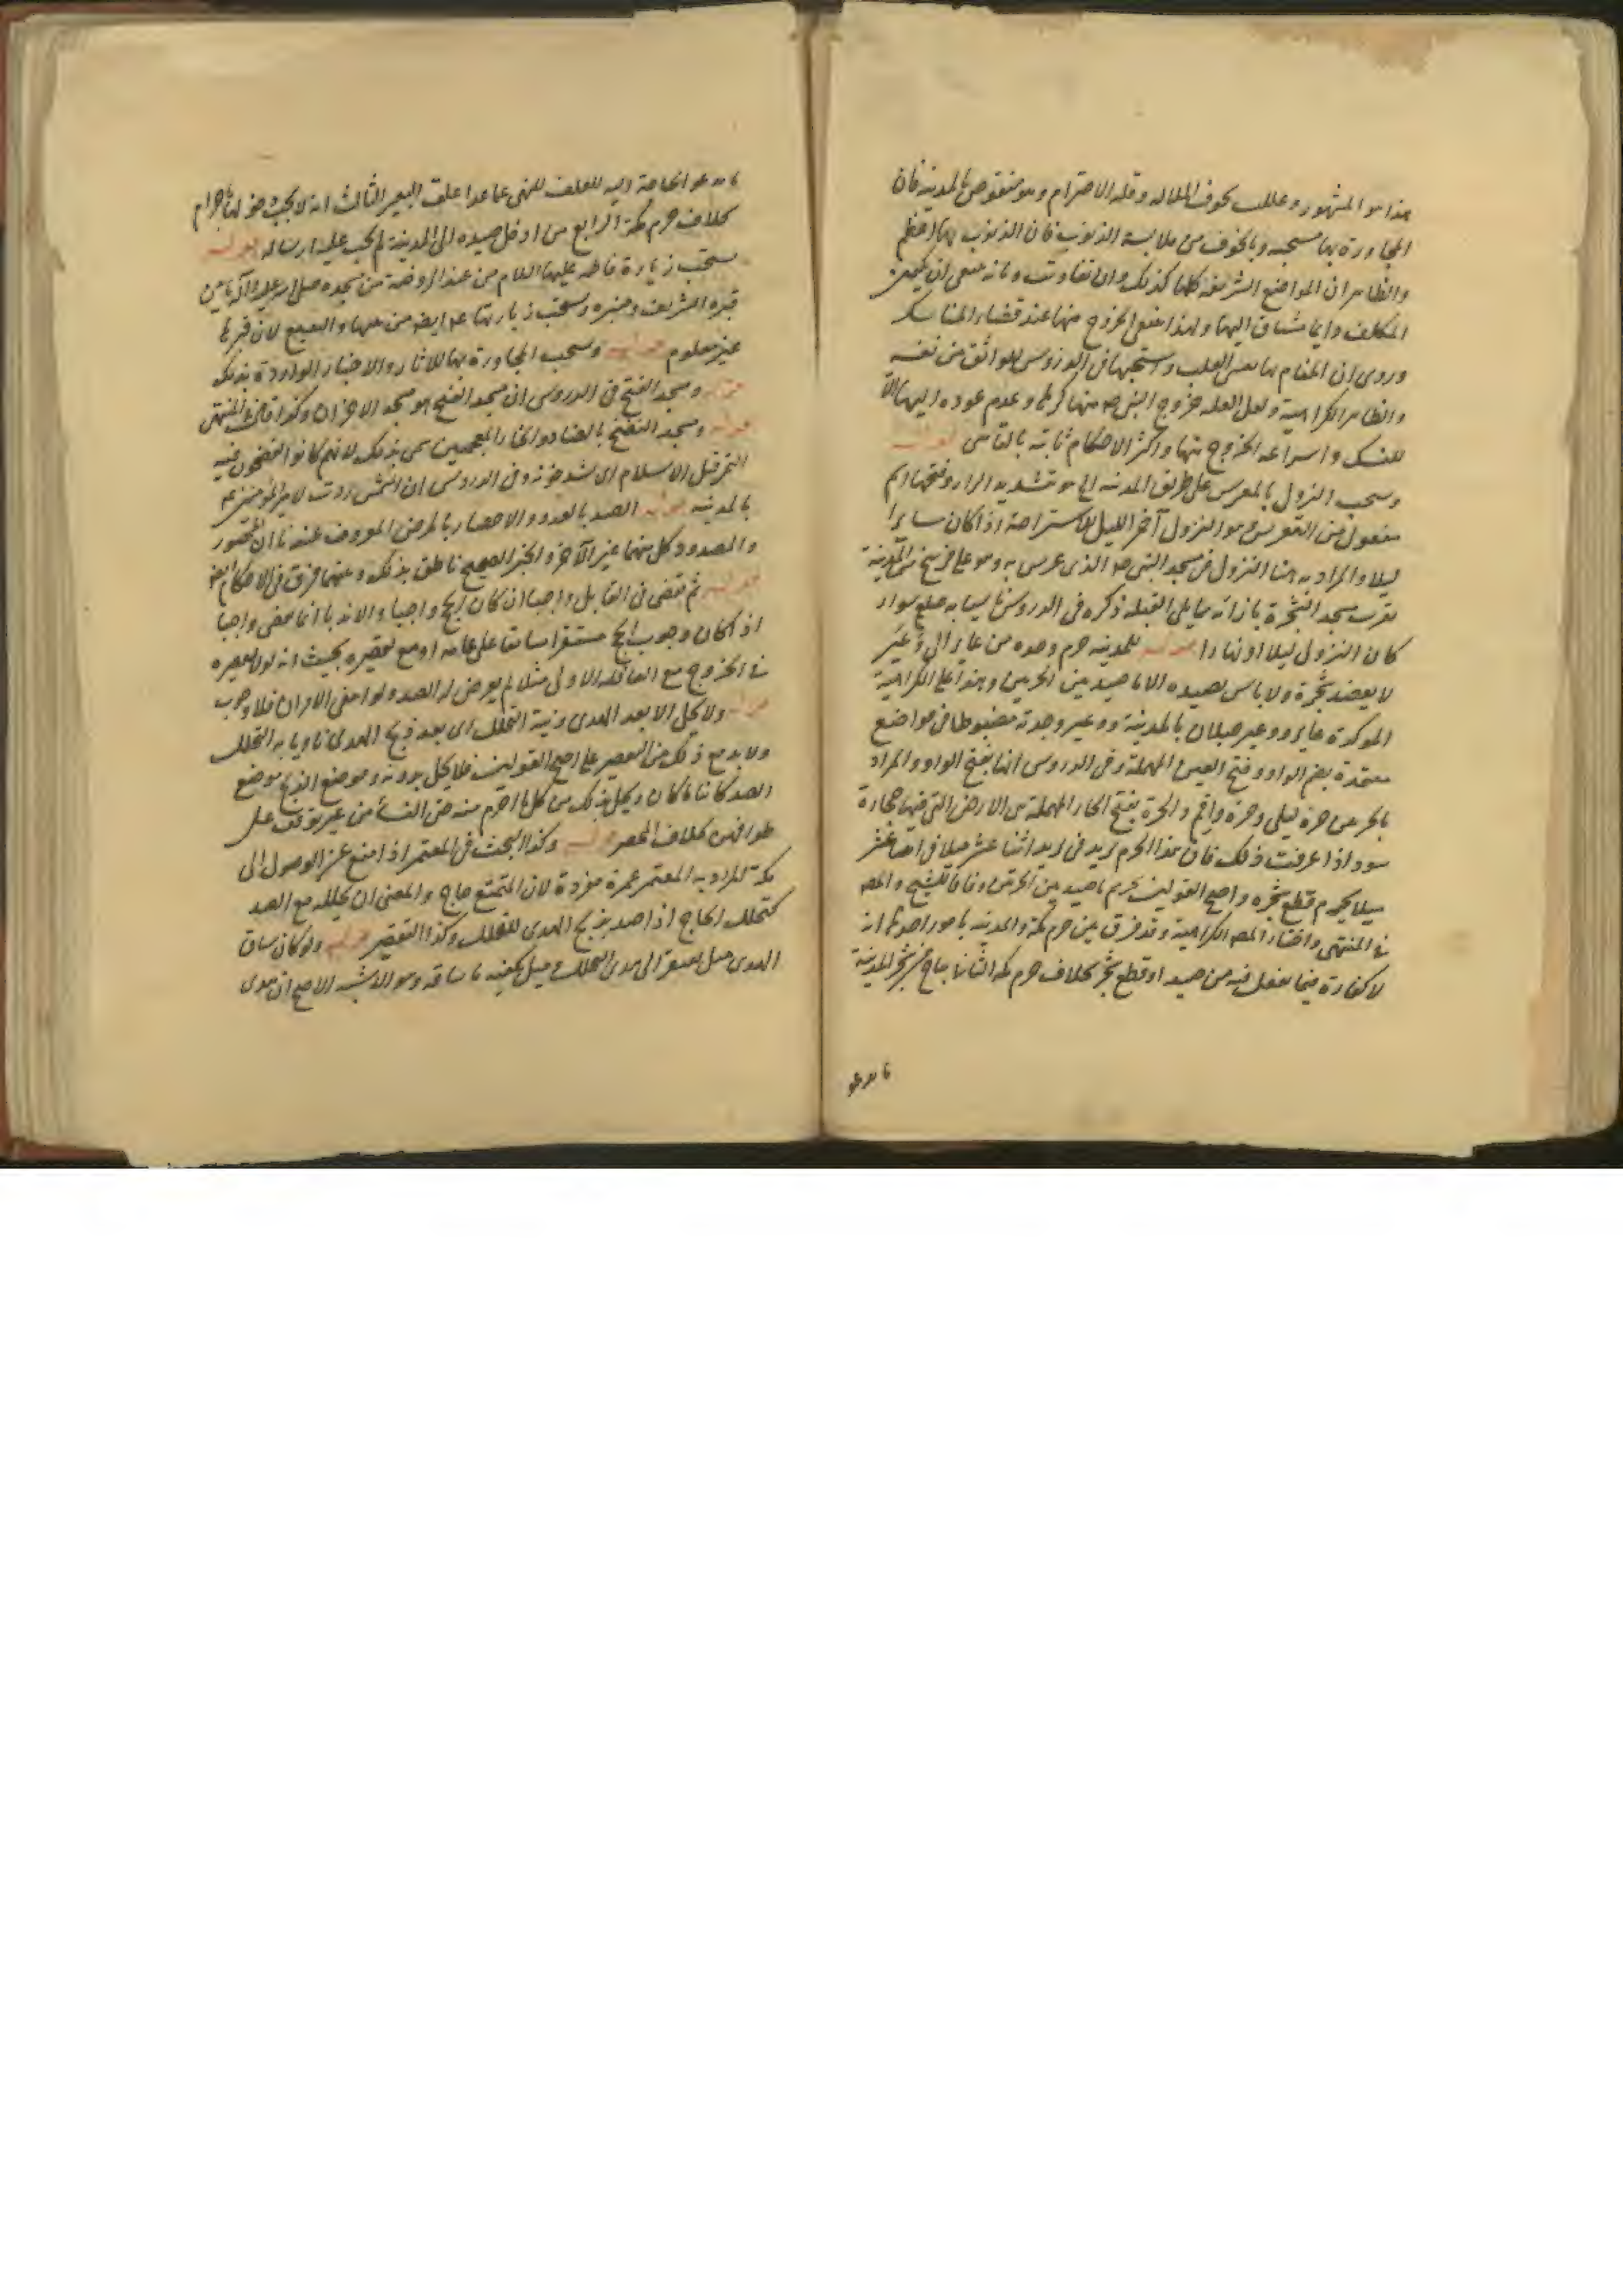 هذا هو المشهور وعلل بخوف الملالة وقلة الاحترام وهو منقوض بالمدينة فان
المجاورة بها مستحبه وبالخوف من ملابسة الذنوب فان الذنوب بها اعظم
والظاهر ان المواضع الشريفة كلها كذلك وان تفاوتت وبانه ينبغي ان يكون
المكلف دايما مشتاق اليها ولهذا ينبغي الخروج منها عند قضاء المناسك
وروى ان المقام بها يقسي القلب واستحبها في الدروس للواثق من نفسه
والظاهر الكراهية ولعل العله خروج النبي صه منها كرها وعدم عوده اليها الا
للنسك واسراعه الخروج منها واكثر الاحكام ثابتة بالتأسي قوله
ويستحب النزول بالمعرس على طريق المدينه الخ هو بتشديد الراء وفتحها اسم
مفعول من التعريس وهو النزول آخر الليل للاستراحة اذا كان سايرا
ليلا والمراد به هنا النزول في مسجد النبي صه الذي عرس به وهو على فرسخ من المدينة
بقرب مسجد الشجرة بازائه مما يلي القبله ذكره في الدروس سواء
كان النزول ليلا او نهارا قوله للمدينه حرم وحده من عاير الى وُعَير
لا يعضد شجره ولا باس بصيده الا ما صيد بين الحرمين وهذا على الكراهية
الموكدة عاير ووعير جبلان بالمدينة ووعير وجدته مضبوطا في مواضع
معتمدة بضم الواو وفتح العين المهملة وفي الدروس انها بفتح الواو والمراد
بالحرمين حرة ليلى وحرة واقم والحرة بفتح الحاء المهملة من الارض التي فيها حجارة
سود اذا عرفت ذلك فان هذا الحرم بريد في بريد اثنا عشر ميلا في اثنا عشر
ميلا يحرم قطع شجره واصح القولين تحريم ما صيد بين الحرتين وفاقا للشيخ والمص
في المنتهى واختار المص الكراهية وقد فرق بين حرم مكة والمدينه بامور احدها انه
لا كفارة فيما يفعل فيه من صيد او قطع شجر بخلاف حرم مكه الثاني يباح من شجر المدينة
ما يدعو
ما يدعو الحاجة اليه للعلف للنهي عما عدا علف البعير الثالث انه لا يجب دخولها باحرام
بخلاف حرم مكة الرابع من ادخل صيده الى المدينة لم يجب عليه ارساله قوله
يستحب زيارة فاطمه عليها السلام من عند الروضة من مسجده صلى الله عليه وآله ما بين
قبره الشريف ومنبره ويستحب زيارتها ع ايضا من بيتها والبقيع لان قبرها
غير معلوم قوله ويستحب المجاورة بها للاثار والاخبار الواردة بذلك
قوله ومسجد الفتح في الدروس ان مسجد الفتح هو مسجد الاحزان وكذا قال في المنتهى
قوله ومسجد الفضيخ بالضاد والخاء المعجمتين سمى بذلك لانهم كانوا يفضخون فيه
التمر قبل الاسلام اى يشدخونه وفي الدروس ان الشمس ردت لامير المؤمنين عم
بالمدينه قوله الصد بالعدو والاحصار بالمرض المعروف عندنا ان المحصور
والمصدود كل منهما غير الآخر والخبر الصحيح ناطق بذلك وبينهما فرق في الاحكام ايضا
قوله ثم يقضى في القابل واجبا ان كان الحج واجبا والا ندبا انما يقضى واجبا
اذا كان وجوب الحج مستقرا سابقا على عامه او مع تقصيره بحيث انه لولا تقصيره
في الخروج مع القافلة الاولى مثلا لم يعرض له الصد ولو انتفى الامران فلا وجوب
قوله ولا يحل الا بعد الهدى ونية التحلل اى بعد ذبح الهدى ناويا به التحلل
ولا بد مع ذلك من التقصير على اصح القولين فلا يحل بدونه وموضع الذبح موضع
الصد كائنا ما كان ويحل بذلك من كل ما احرم منه حتى النساء من غير توقف على
طوافهن بخلاف الحصر قوله وكذا البحث في المعتمر اذا منع عن الوصول الى
مكة المراد به المعتمر عمرة مفردة لان المتمتع حاج والمعنى ان تحلله مع الصد
كتحلل الحاج اذا صد بذبح الهدى للتحلل وكذا التقصير قوله ولو كان ساق
الهدى قيل يفتقر الى هدى التحلل وقيل يكفيه ما ساقه وهو الاشبه الاصح ان هدى